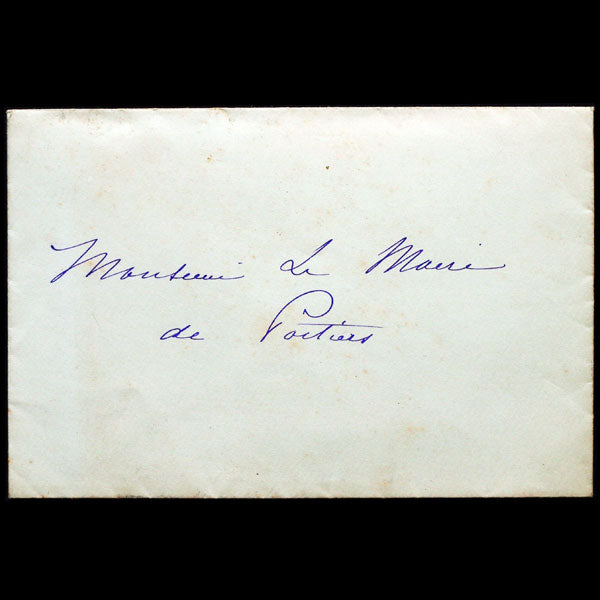 Monsieur Le Maire
de Poitiers